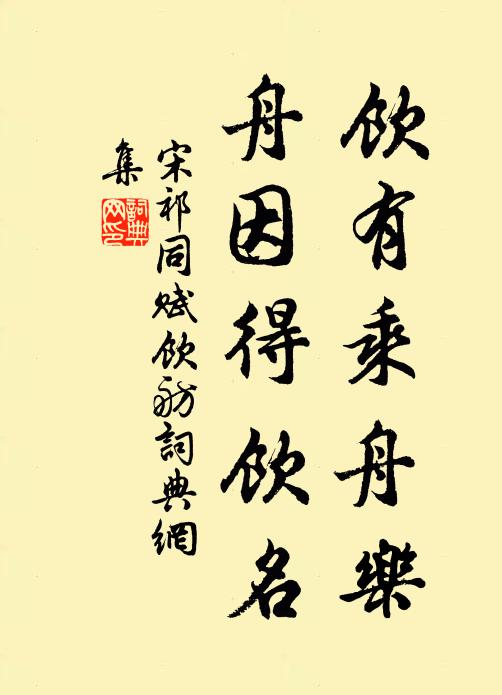 飲有乘舟樂
舟因得飲名
宋祁同賦飲舫詞典網
集
詞典
网印